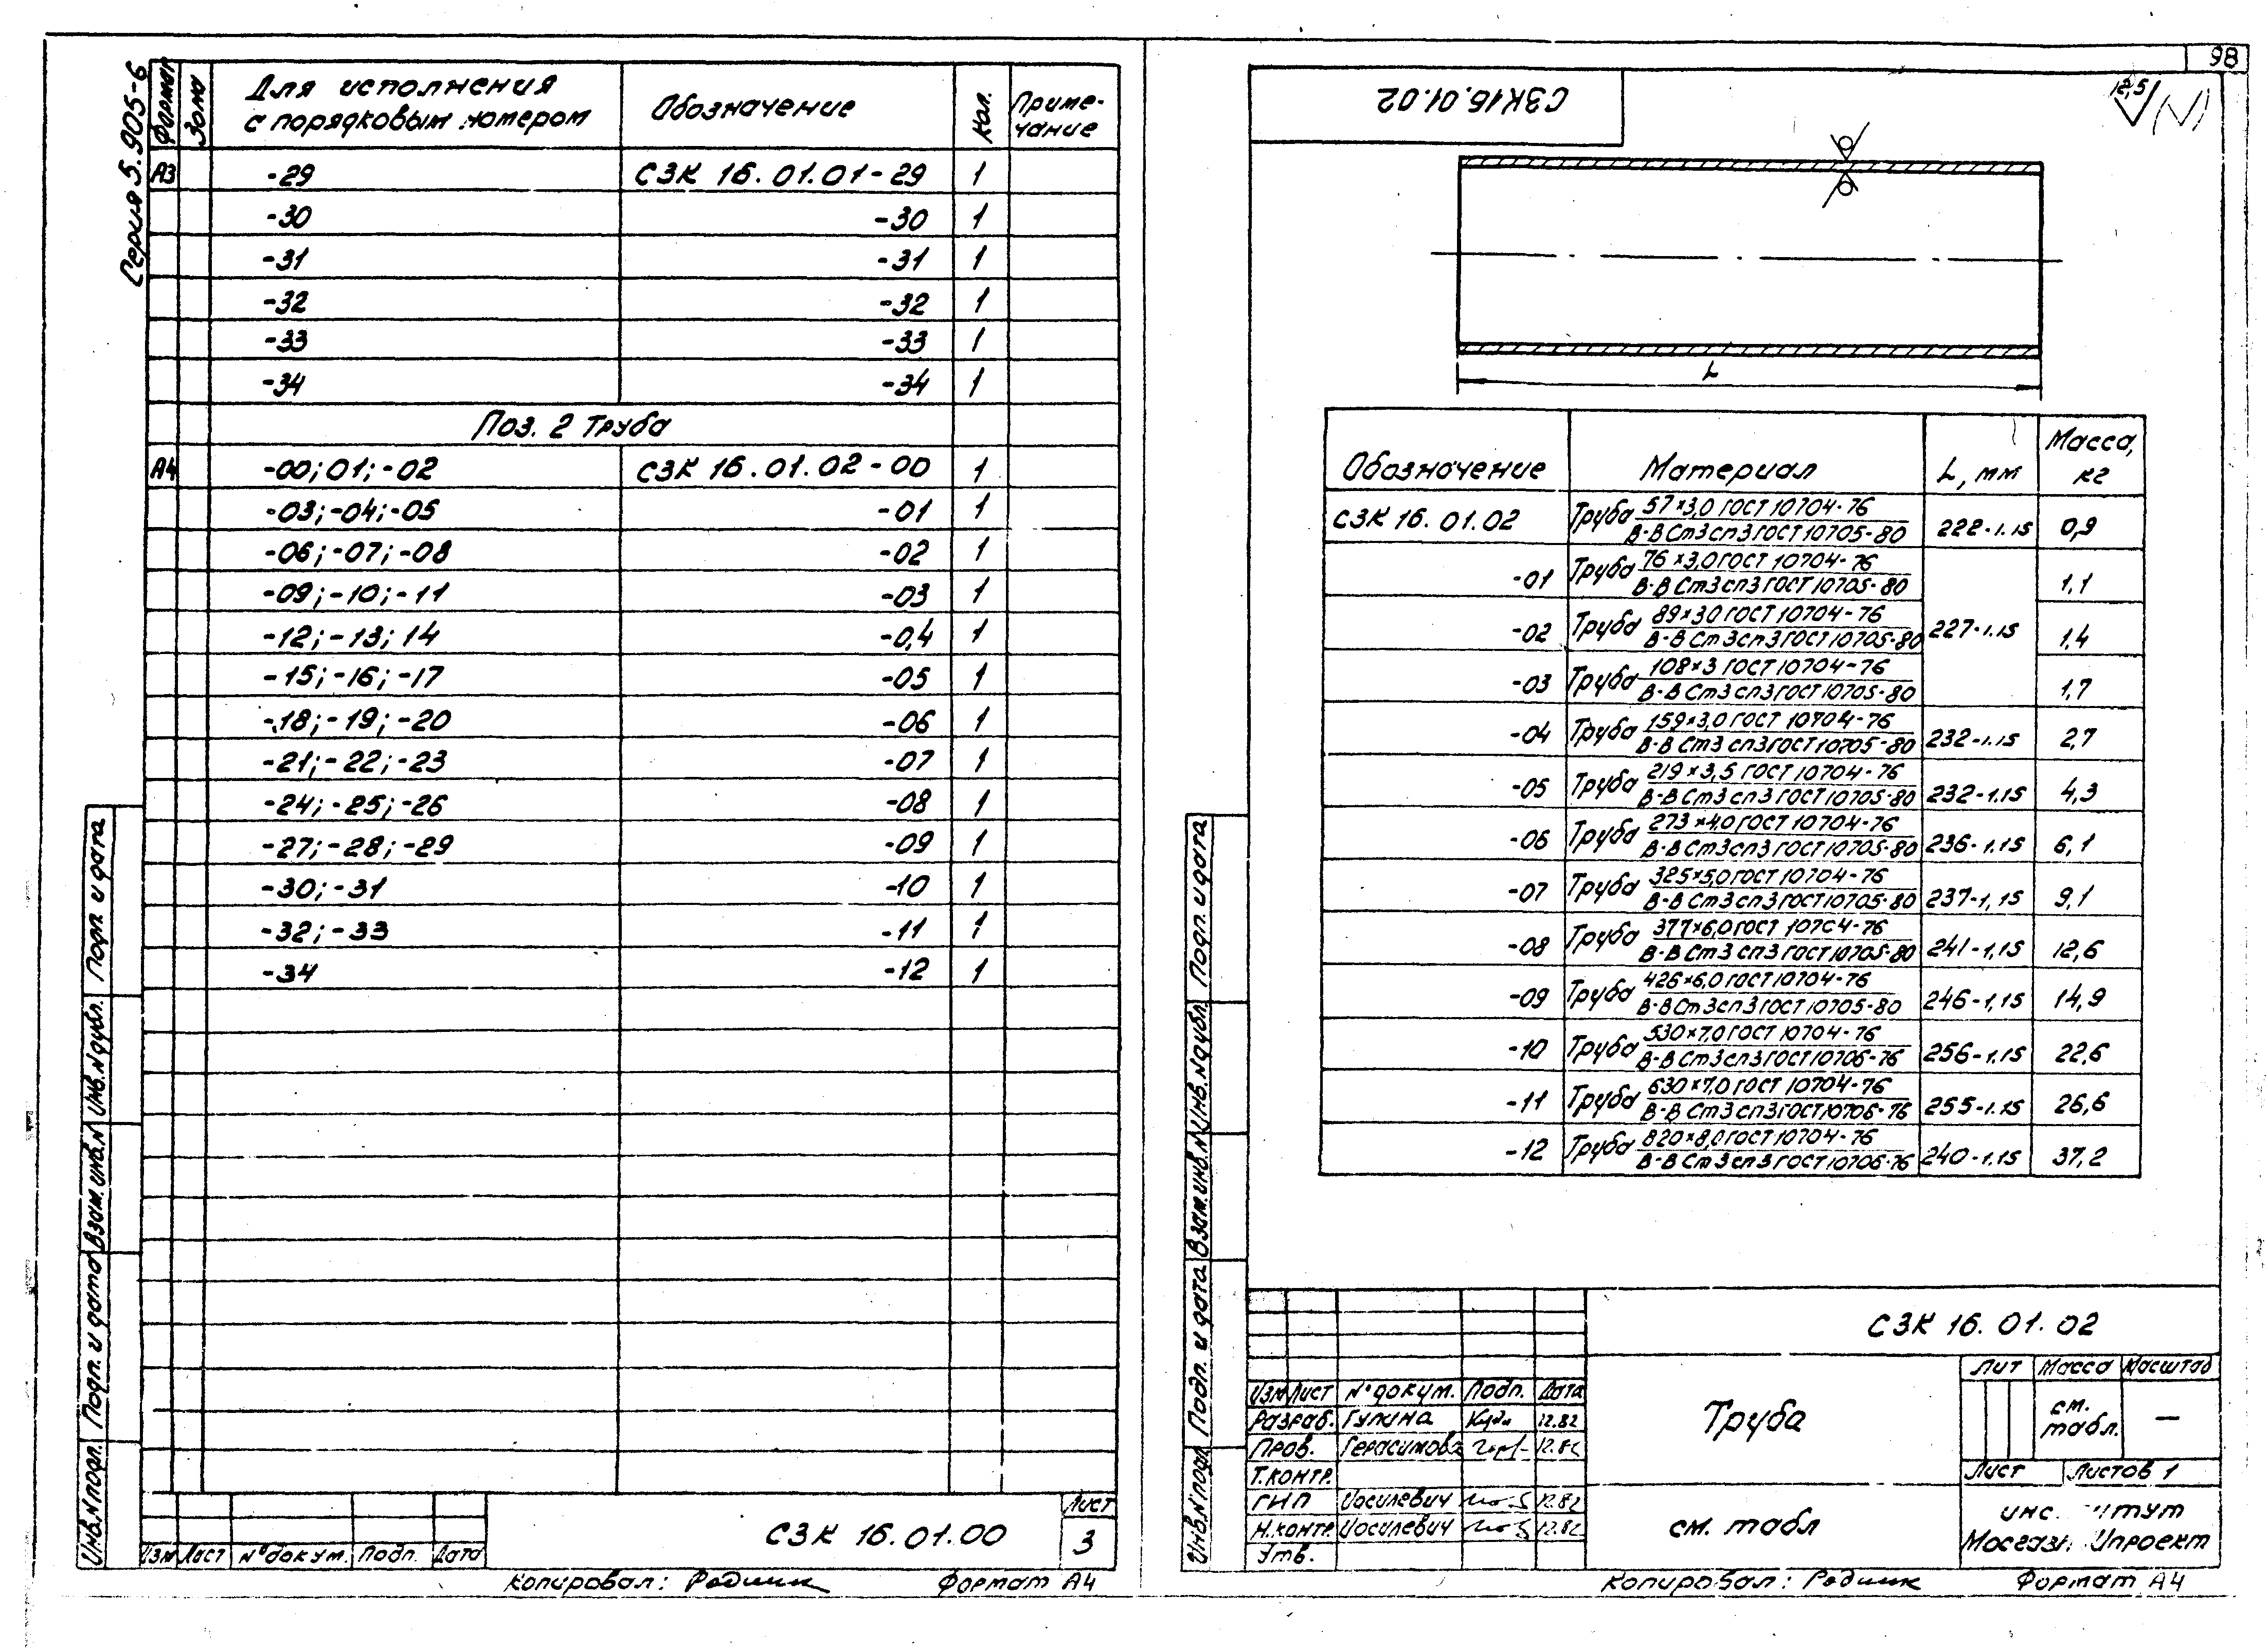 98
Серия 5.905-6
Формат Зона Для исполнения с порядковым номером Обозначение Кол. Приме-чание
А3 -29 СЗК 16.01.01-29 1
-30 -30 1
-31 -31 1
-32 -32 1
-33 -33 1
-34 -34 1
Поз. 2 Труба
А4 -00; 01; -02 СЗК 16.01.02-00 1
-03; -04; -05 -01 1
-06; -07; -08 -02 1
-09; -10; -11 -03 1
-12; -13; 14 -0,4 1
-15; -16; -17 -05 1
-18; -19; -20 -06 1
-21; -22; -23 -07 1
-24; -25; -26 -08 1
-27; -28; -29 -09 1
-30; -31 -10 1
-32; -33 -11 1
-34 -12 1
Инв.N подл. Подп. и дата Взам.инв.N Инв.N дубл. Подп. и дата
Изм Лист N°докум. Подп. Дата
СЗК 16.01.00
Лист
3
Копировал: Формат А4
СЗК16.01.02
12,5
L
Обозначение Материал L, мм Масса, кг
СЗК 16.01.02 Труба 57×3,0 ГОСТ 10704-76 222-1.15 0,9
В-В Ст3сп3 ГОСТ 10705-80
-01 Труба 76×3,0 ГОСТ 10704-76 1,1
В-В Ст3сп3 ГОСТ 10705-80
-02 Труба 89×30 ГОСТ 10704-76 227-1.15 1,4
В-В Ст3сп3 ГОСТ 10705-80
-03 Труба 108×3 ГОСТ 10704-76 1,7
В-В Ст3сп3 ГОСТ 10705-80
-04 Труба 159×3,0 ГОСТ 10704-76 232-1.15 2,7
В-В Ст3сп3 ГОСТ 10705-80
-05 Труба 219×3,5 ГОСТ 10704-76 232-1.15 4,3
В-В Ст3сп3 ГОСТ 10705-80
-06 Труба 273×4,0 ГОСТ 10704-76 236-1.15 6,1
В-В Ст3сп3 ГОСТ 10705-80
-07 Труба 325×5,0 ГОСТ 10704-76 237-1,15 9,1
В-В Ст3сп3 ГОСТ 10705-80
-08 Труба 377×6,0 ГОСТ 10704-76 241-1,15 12,6
В-В Ст3сп3 ГОСТ 10705-80
-09 Труба 426×6,0 ГОСТ 10704-76 246-1,15 14,9
В-В Ст3сп3 ГОСТ 10705-80
-10 Труба 530×7,0 ГОСТ 10704-76 256-1.15 22,6
В-В Ст3сп3 ГОСТ 10706-76
-11 Труба 630×7,0 ГОСТ 10704-76 255-1.15 26,6
В-В Ст3сп3 ГОСТ 10706-76
-12 Труба 820×8,0 ГОСТ 10704-76 240-1.15 37,2
В-В Ст3сп3 ГОСТ 10706-76
Инв.N подл. Подп. и дата Взам.инв.N Инв.N дубл. Подп. и дата
СЗК 16.01.02
Изм Лист N°докум. Подп. Дата
Разраб. Гулина 12.82
Пров. Герасимова 12.82
Т.контр.
ГИП Иосилевич 12.82
Н.контр. Иосилевич 12.82
Утв.
Труба
Лит Масса Масштаб
см. табл. —
Лист Листов 1
см. табл
Копировал: Формат А4